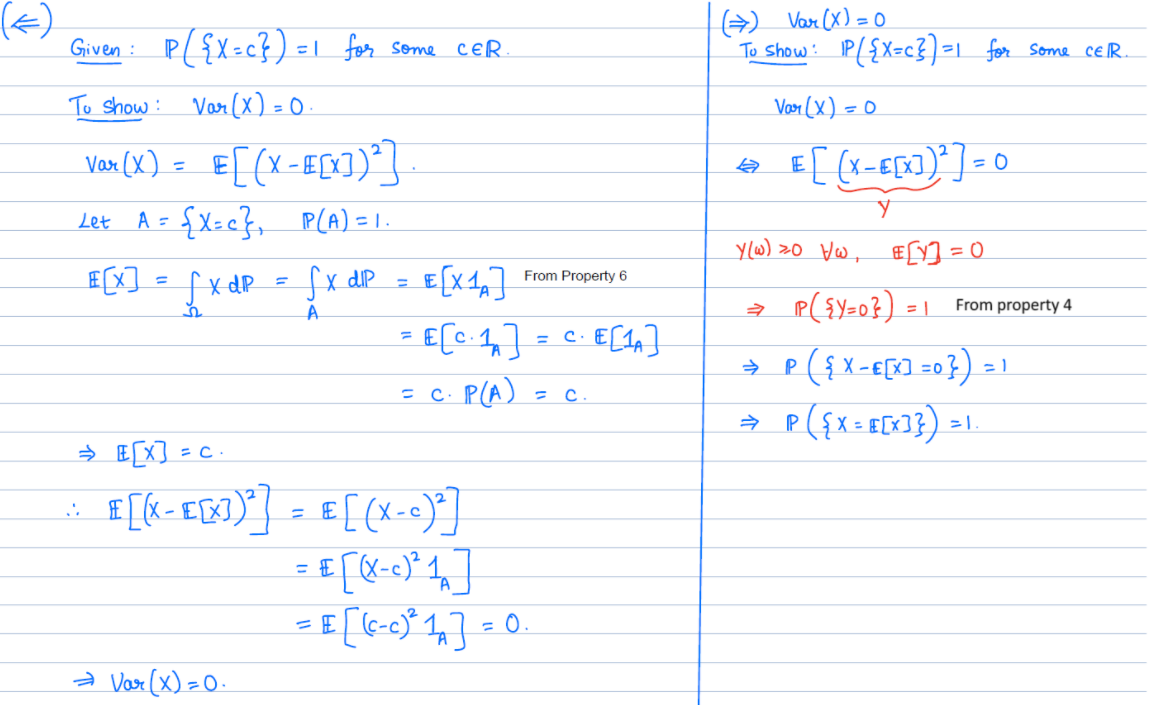 (⇐)
Given : ℙ({X=c}) = 1 for some c∈ℝ.
To show : Var(X) = 0.
Var(X) = 𝔼[(X-𝔼[X])²].
Let A = {X=c}, ℙ(A) = 1.
𝔼[X] = ∫_Ω X dℙ = ∫_A X dℙ = 𝔼[X 1_A] From Property 6
= 𝔼[c·1_A] = c· 𝔼[1_A]
= c· ℙ(A) = c.
⇒ 𝔼[X] = c.
∴ 𝔼[(X-𝔼[X])²] = 𝔼[(X-c)²]
= 𝔼[(X-c)² 1_A]
= 𝔼[(c-c)² 1_A] = 0.
⇒ Var(X) = 0.
(⇒) Var(X) = 0
To show : ℙ({X=c}) = 1 for some c∈ℝ.
Var(X) = 0
⇔ 𝔼[(X-𝔼[X])²] = 0
Y
Y(ω) ≥0 ∀ω, 𝔼[Y] = 0
⇒ ℙ({Y=0}) = 1 From property 4
⇒ ℙ({X-𝔼[X] =0}) = 1
⇒ ℙ({X = 𝔼[X]}) = 1.